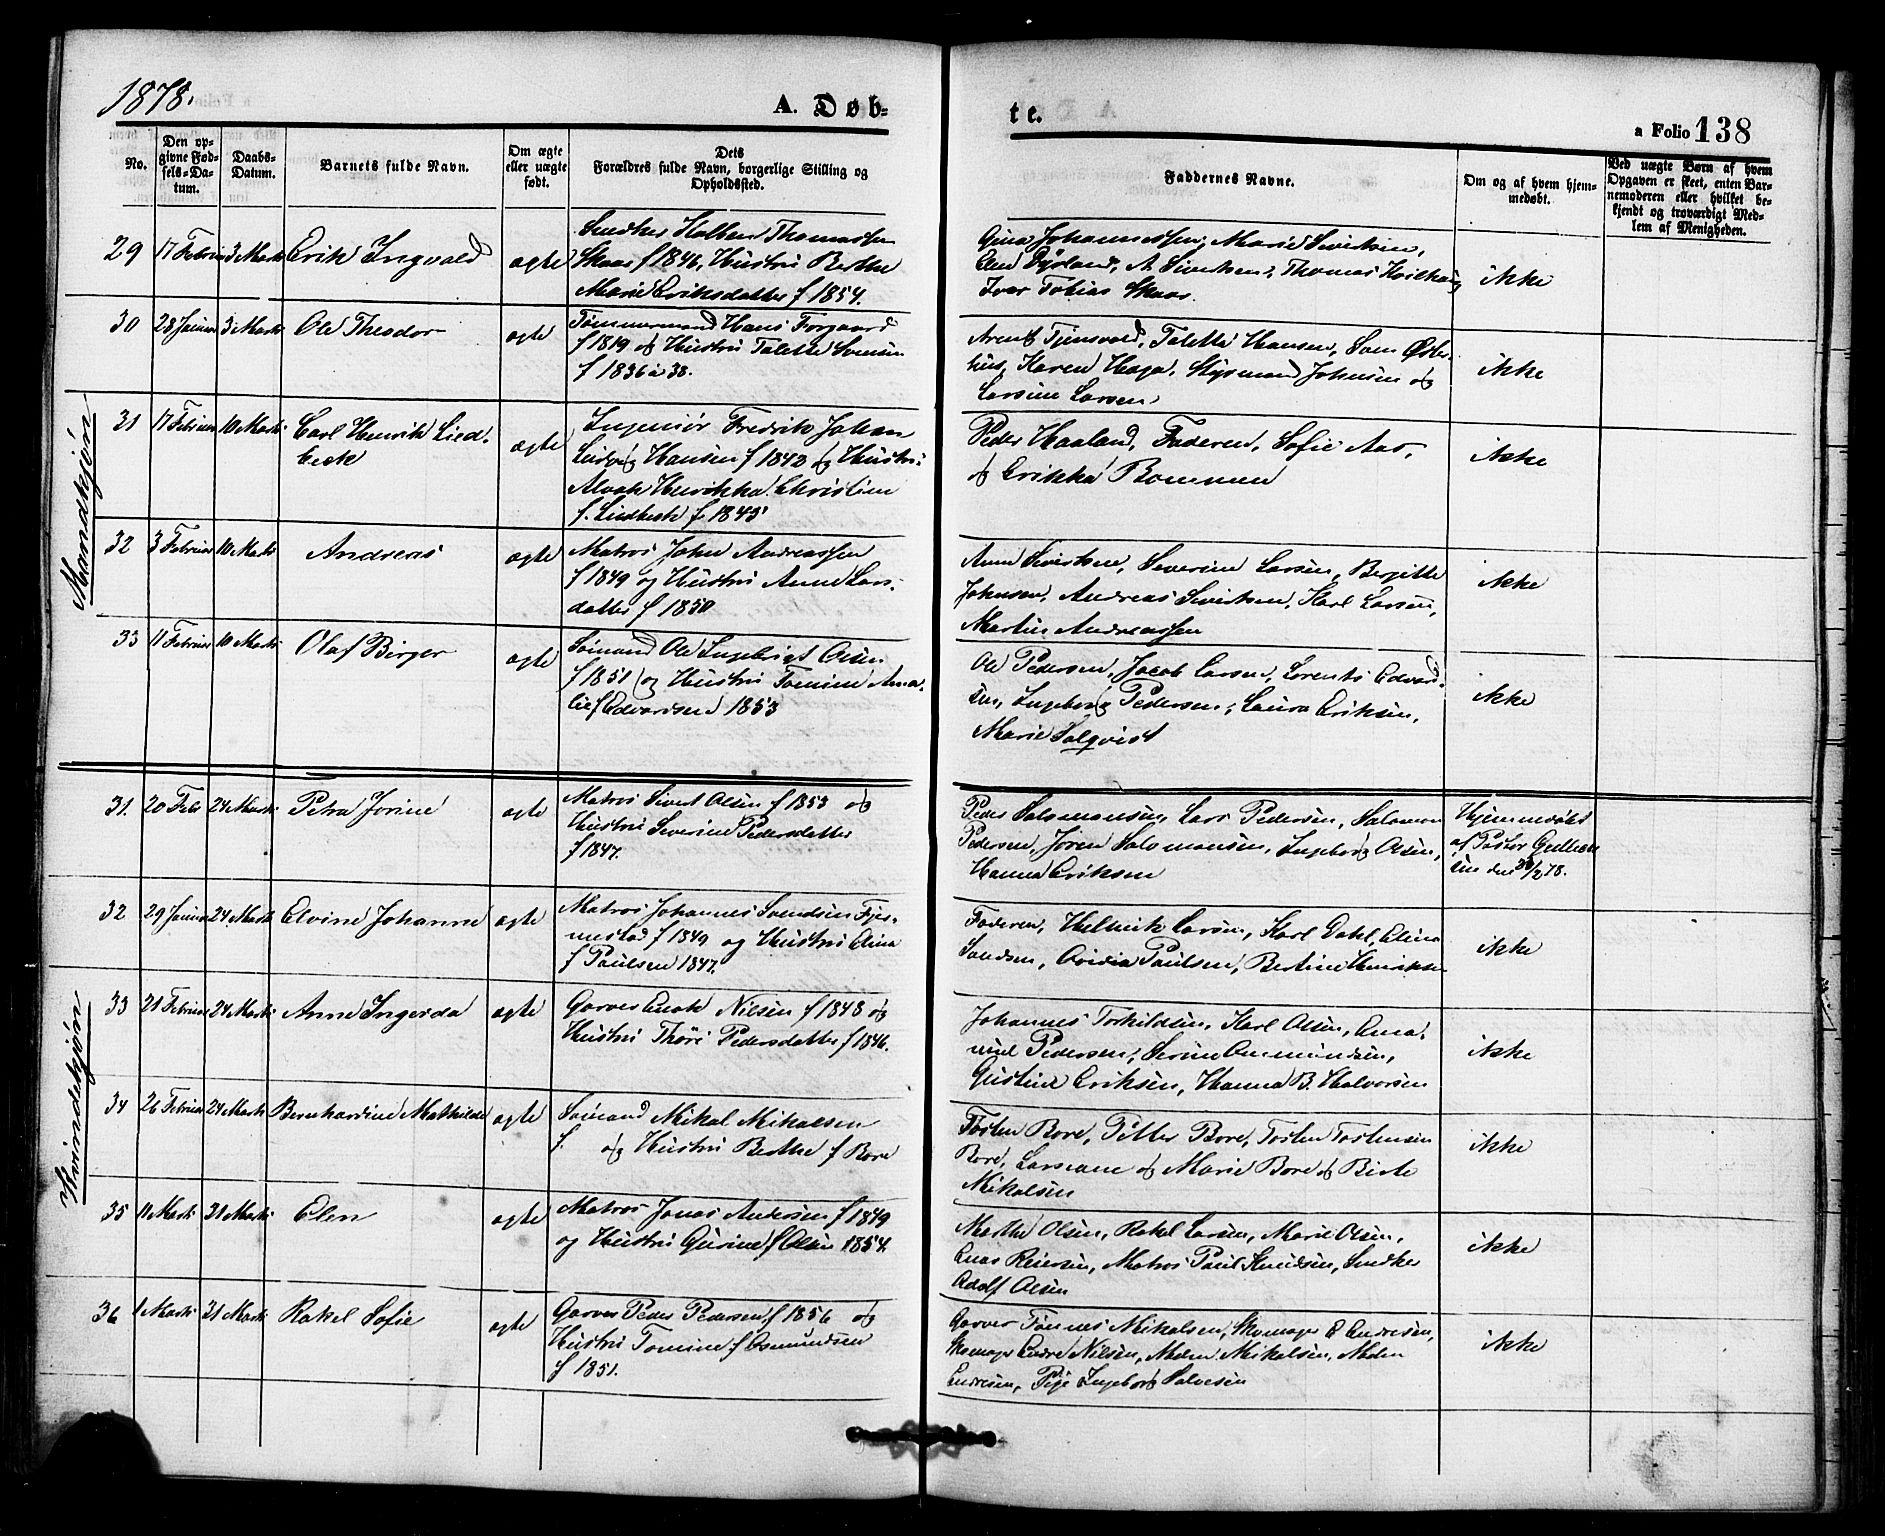 1878.
A. Døb-
te.
a Folio 138
No.
Den op-
givne Fød-
sels-Da-
tum.
Daabs-
Datum.
Barnets fulde Navn.
Om ægte
eller uægte
født.
Dets
Forældres fulde Navn, borgerlige Stilling og
Opholdssted.
Faddernes Navne.
Om og af hvem hjem-
medøbt.
Ved uægte Børn af hvem
Opgaven er skeet, enten Bar-
nemoderen eller hvilket be-
kjendt og troværdigt Med-
lem af Menigheden.
Mandkjøn
29 17 Februar 3 Marts Erik Ingvald ægte
Snedker Thomassen
Skaar f 1846, Hustru Berthe
Marie Eriksdatter f 1854.
Gina Johannessen, Marie Sivertsen,
Elen A Sivertsen, Thomas
Ivar Tobias Skaar.
ikke
30 28 Januar 3 Marts Ole Theodor ægte
Tømmermand Hans Torgaard
f 1819 og Hustru Talette Svensen
f 1836 a 38.
Arent Tjensvold, Talette Hansen, Sam Øster-
hus, Karen Haga, Styrmand Johnsen og
Larsine Larsen,
ikke
31 17 Februar 10 Marts Carl Henrik Lied-
beck ægte
Ingeniør Fredrik Johan
Ludvig Hansen f 1842 og Hustru
Henrikka Christine
f. Liedbeck f 1843
Peder Haaland, Faderen, Sofie Aas,
og Erikka Rommen
ikke
32 3 Februar 10 Marts Andreas ægte
Matros John Andreassen
f 1849 og Hustru Anne Lars-
datter f 1850
Anne Sivertsen, Severine Larsen, Bergitte
Johnsen, Andreas Sivertsen, Karl Larsen,
Martin Andreassen
ikke
33 11 Februar 10 Marts Olaf Birger ægte
Sømand Ole Ingebrigt Olsen
f 1851 og Hustru Tomine Ama-
lie f Edvardsen 1853
Ole Pedersen, Jacob Larsen, Lorents Edvard-
sen, Ingeborg Pedersen, Laura Eriksen,
Marie Salqvist
ikke
Kvindekjøn
31. 20 Febr 24 Marts Petra Jorine ægte
Matros Sivert Olsen f 1853 og
Hustru Severine Pedersdatter
f 1847.
Peder Salomonsen, Lars Pedersen, Salomon
Pedersen, Jøren Salomonsen, Ingeborg Olsen,
Hanna Eriksen
Hjemmedøbt
af Pastor
sen den /2 78.
32 29 Januar 24 Marts Elvine Johanne ægte
Matros Johannes Svendsen Fjer-
mestad f 1849 og Hustru Elina
f Paulsen 1847.
Faderen, Helmik Larsen, Karl Dahl, Elina
Sandsen, Ovidia Paulsen, Bertine Henriksen
ikke
33 21 Februar 24 Marts Anne Ingerda ægte
Garver Enok Nilsen f 1848 og
Hustru Thøri Pedersdatter f 1846.
Johannes Torkildsen, Karl Olsen, Ema-
nuel Pedersen, Serine Ommundsen,
Gustine Eriksen, Hanna B. Halvorsen
ikke
34 26 Februar 24 Marts Bernhardine Mathilde ægte
Sømand Mikal Mikalsen
f. og Hustru Berthe f Bore
Tosten Bore, Petter Bore, Tosten Tostensen
Bore, Larsiane og Marie Bore og Birte
Mikalsen
ikke
35 11 Marts 31 Marts Elen ægte
Matros Jonas Andersen f 1849
og Hustru Gurine f Olsen 1854.
Marthe Olsen, Rakel Larsen, Marie Olsen,
Enas Reiersen, Matros Paul Knudsen, Snedker
Adolf Olsen
ikke
36 1 Marts 31 Marts Rakel Sofie ægte
Garver Peder Pedersen f 1856 og
Hustru Tomine f Osmundsen
f 1851.
Garver Tønnes Mikalsen, Skomager E Endresen,
Skomager Endre Nilsen, Malen Mikalsen, Malen
Endresen, Pige Ingeborg Salvesen
ikke